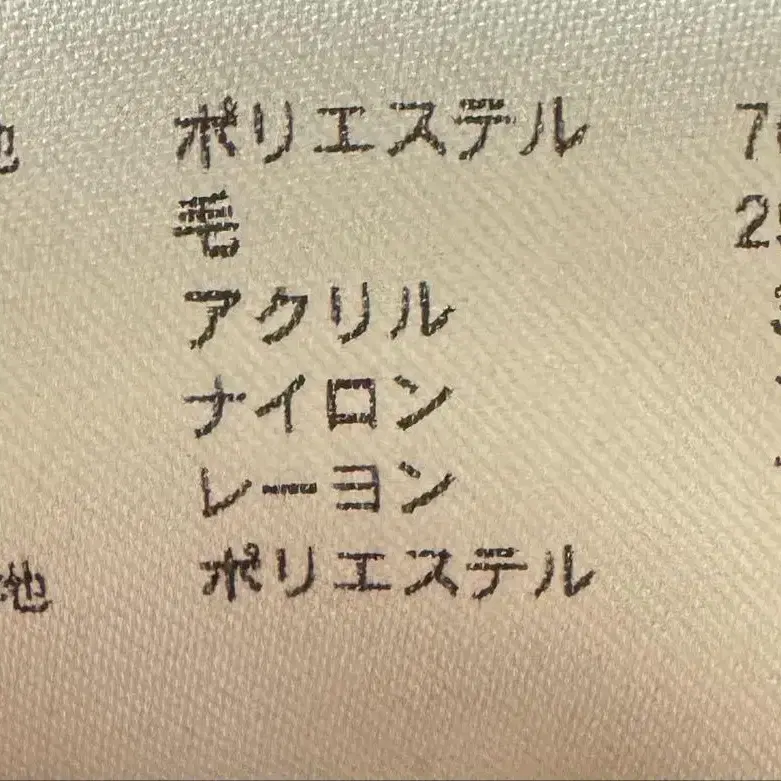 地 ポリエステル 7
毛 2
アクリル
ナイロン
レーヨン
地 ポリエステル